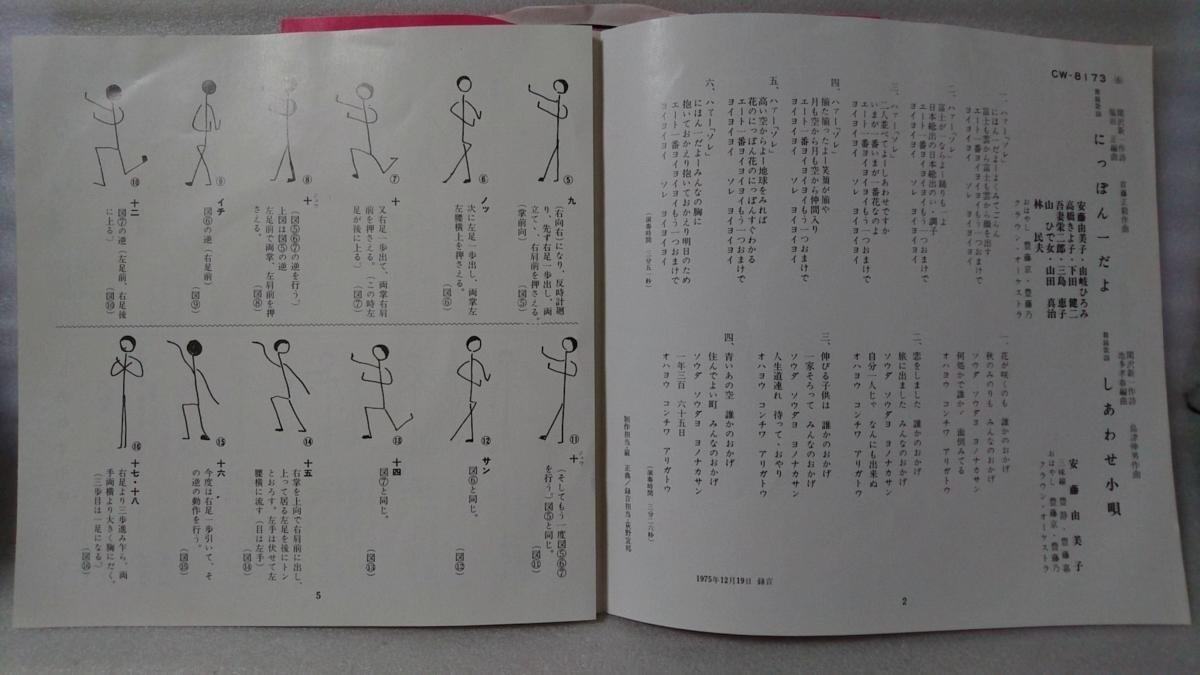 CW-8173
舞踊歌謡
にっぽん一だよ
関沢新一作詩
安藤由美子・山岐ひろみ
高橋きよ子・下田 健二
吾妻栄二郎・三島 恵子
山 ひで女・山田 真治
林 民夫
おはやし 豊藤京・豊藤乃
クラウン・オーケストラ
一、ハアー「ソレ」
にほん一だよーよくみてごらん
富士も雲から富士も雲から顔を出す
エート一番ヨイヨイもう一つおまけで
ヨイヨイヨイ ソレ ヨイヨイヨイ
二、ハアー「ソレ」
富士が一ならよー踊りも一よ
日本総出の日本総出のいゝ調子
エート一番ヨイヨイもう一つおまけで
ヨイヨイヨイ ソレ ヨイヨイヨイ
三、ハアー「ソレ」
二人並べてよーしあわせですか
いまが一番いまが一番花なのよ
エート一番ヨイヨイもう一つおまけで
ヨイヨイヨイ ソレ ヨイヨイヨイ
四、ハアー「ソレ」
揃た揃ったよー笑顔が揃や
月も空から月も空から仲間入り
エート一番ヨイヨイもう一つおまけで
ヨイヨイヨイ ソレ ヨイヨイヨイ
五、ハアー「ソレ」
高い空からよー地球をみれば
花のにっぽん花のにっぽんすぐわかる
エート一番ヨイヨイもう一つおまけで
ヨイヨイヨイ ソレ ヨイヨイヨイ
六、ハアー「ソレ」
にほん一だよーみんなの胸に
抱いておかえり抱いておかえり明日のため
エート一番ヨイヨイもう一つおまけで
ヨイヨイヨイ ソレ ヨイヨイヨイ
(演奏時間 三分五一秒)
舞踊歌謡
しあわせ小唄
関沢新一作詩
安藤由美子
三味線 豊静・豊藤嘉
おはやし 豊藤京・豊藤乃
クラウン・オーケストラ
一、花が咲くのも 誰かのおかげ
秋のみのりも みんなのおかげ
ソウダ ソウダヨ ヨノナカサン
何処かで誰かゞ 面倒みてる
オハヨウ コンチワ アリガトウ
二、恋をしました 誰かのおかげ
旅に出ました みんなのおかげ
ソウダ ソウダヨ ヨノナカサン
自分一人じゃ なんにも出来ぬ
オハヨウ コンチワ アリガトウ
三、伸びる子供は 誰かのおかげ
一家そろって みんなのおかげ
ソウダ ソウダヨ ヨノナカサン
人生道連れ 待って・おやり
オハヨウ コンチワ アリガトウ
四、青いあの空 誰かのおかげ
住んでよい町 みんなのおかげ
ソウダ ソウダヨ ヨノナカサン
一年三百 六十五日
オハヨウ コンチワ アリガトウ
(演奏時間 三分二六秒)
1975年12月19日 録音
2
九
(右向右)になり、反時計廻
り、先ず右足一歩出し、両
立て、、右肩前を押さえる。
(掌前向) (図⑤)
⑤
ノッ
次に左足一歩出し、両掌左
左腰横上を押さえる。
(図⑥)
⑥
十
又右足一歩出て、両掌右肩
前を押さえる。(この時左
足が後に上る)
(図⑦)
⑦
十ショウ
(図⑤⑥⑦の逆を行う)
上図は図⑤の逆
左足前で両掌、左肩前を押
さえる。 (図⑧)
⑧
イチ
図⑥の逆(右足前)
(図⑨)
⑨
十二
図⑦の逆(左足前、右足後
に上る) (図⑩)
⑩
十ショウ
(そしてもう一度図⑤⑥⑦
を行う。)図⑤と同じ。
(図⑪)
⑪
サン
図⑥と同じ。
(図⑫)
⑫
十四
図⑦と同じ。
(図⑬)
⑬
十五
右掌を上向で右肩前に出し、
上って居る左足を後にトン
とおろす。左手は伏せて左
腰横に流す(目は左手)
(図⑭)
⑭
十六
今度は右足一歩引いて、そ
の逆の動作を行う。
(図⑮)
⑮
十七・十八
右足より三歩進み乍ら、両
手両横より大きく胸にだく。
(三歩目は一足になる)
(図⑯)
⑯
5